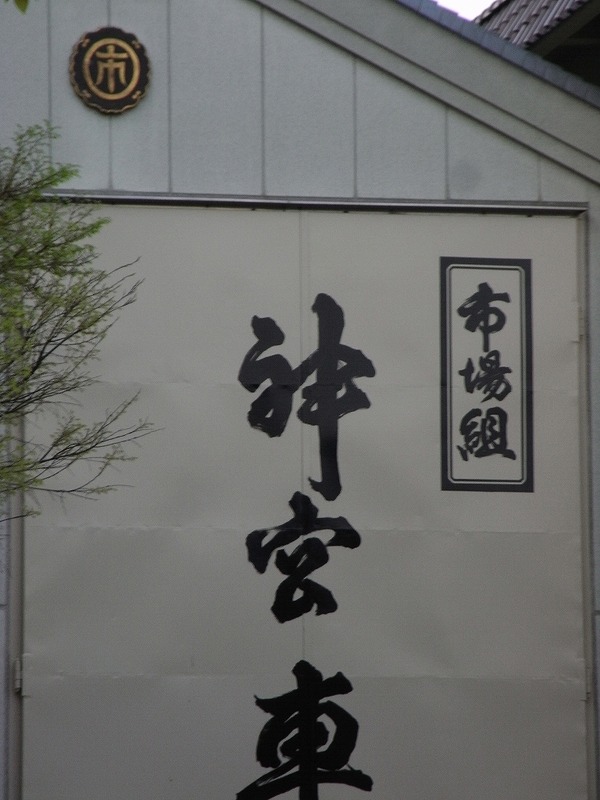 市
市場組
神宮車